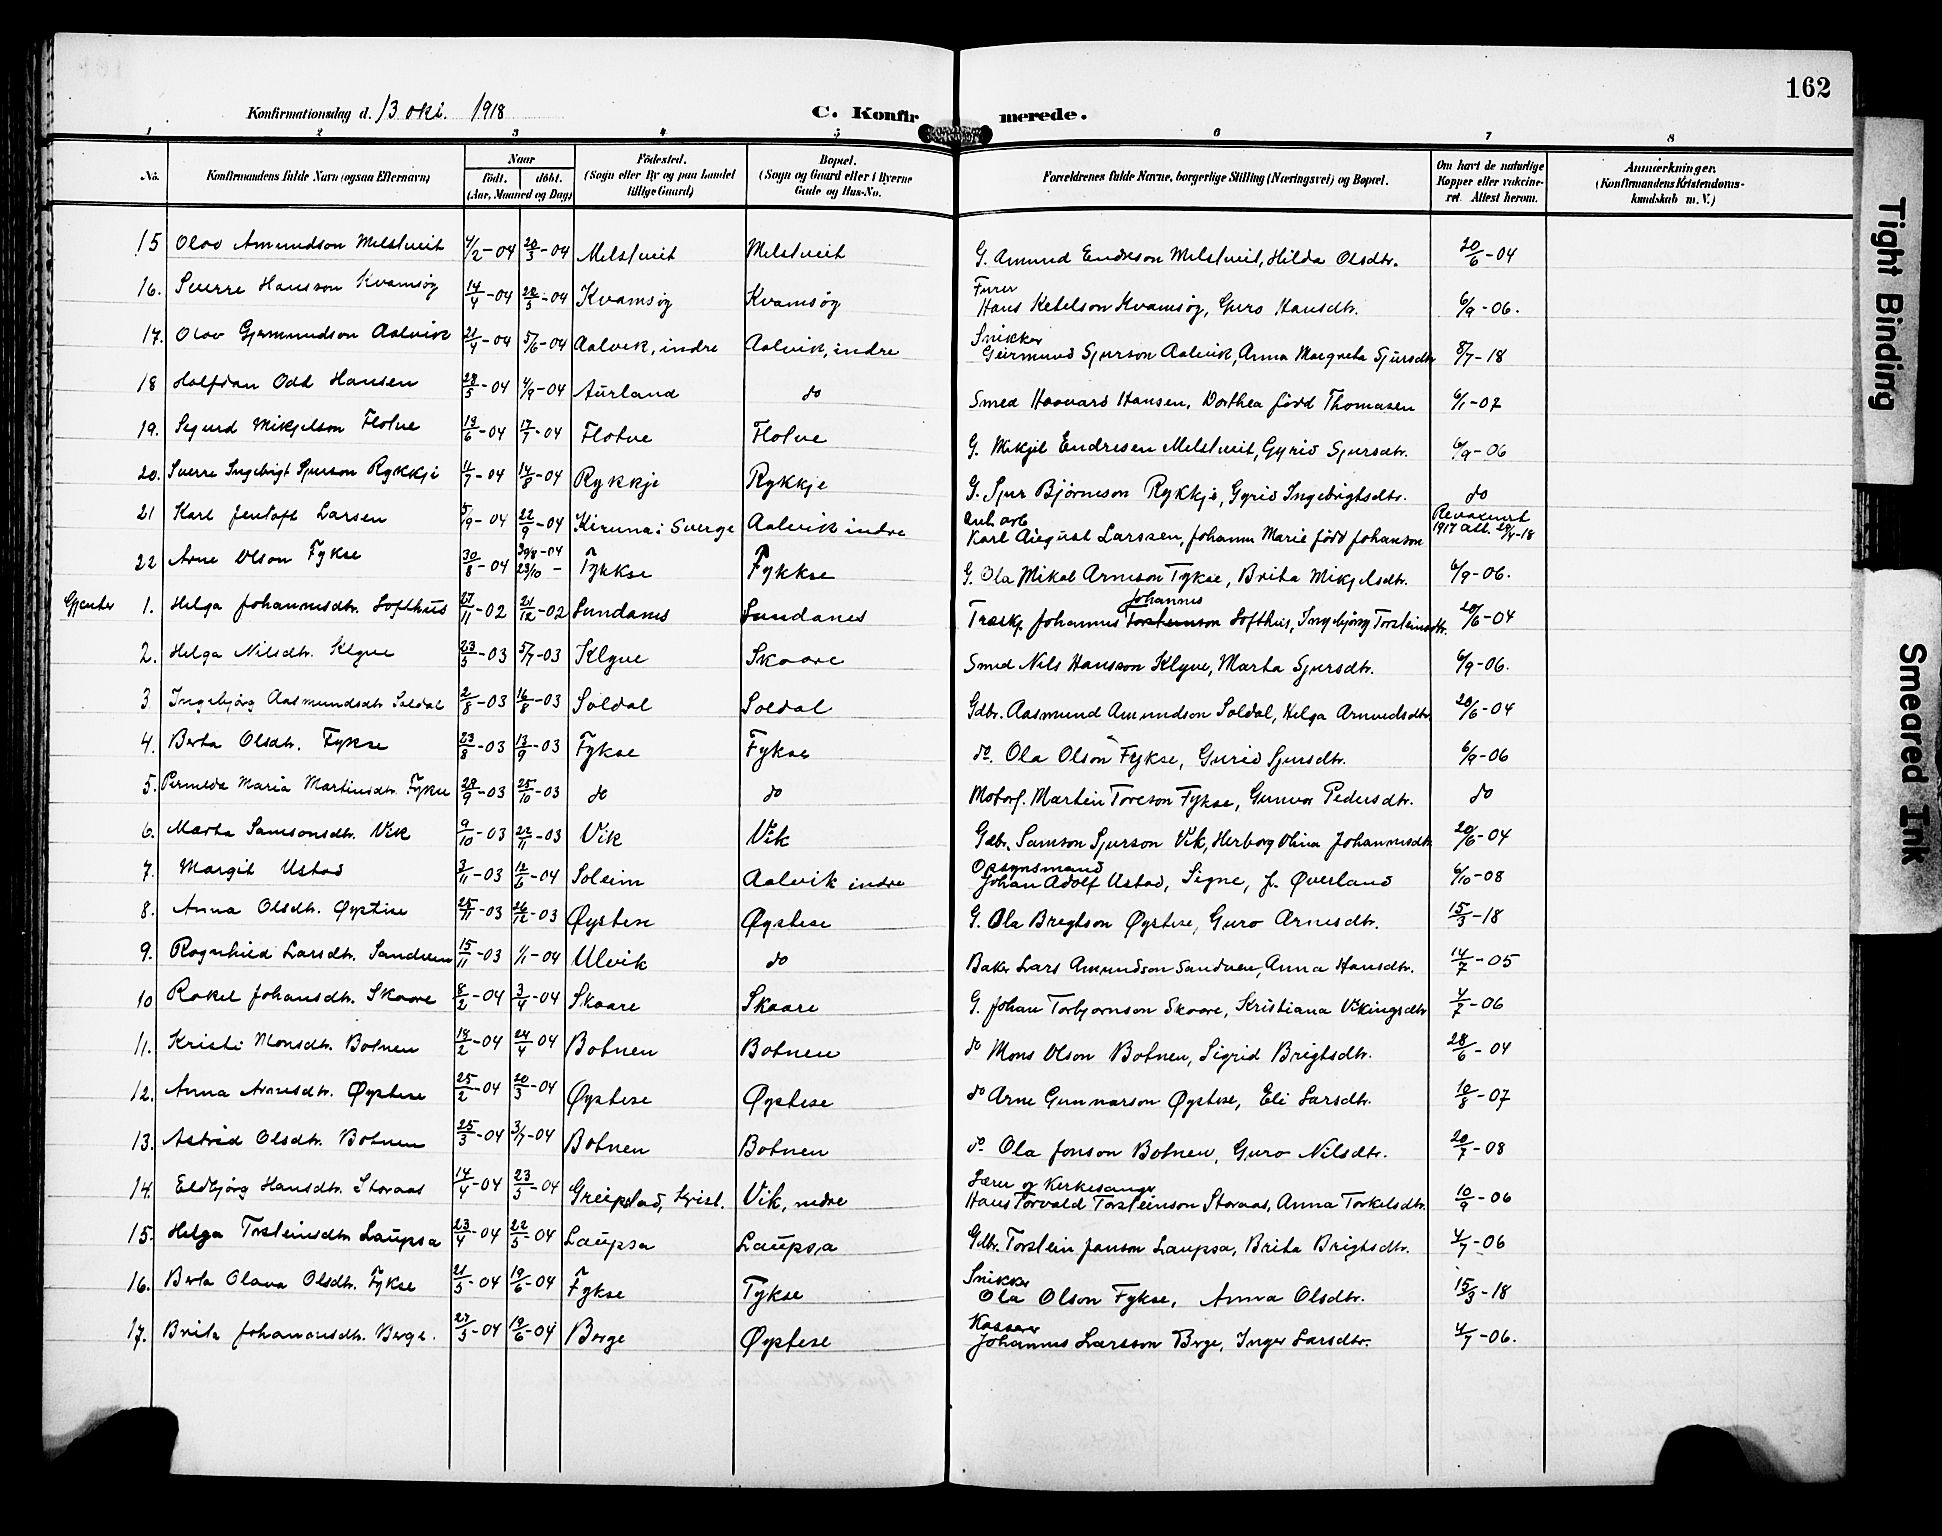 162
Konfirmationsdag d. 13 okt. 1918
C. Konfirmerede.
1 2 3 4 5 6 7 8
No.
Konfirmandens fulde Navn (ogsaa Efternavn)
Naar
født. døbt.
(Aar, Maaned og Dag)
Fødested.
(Sogn eller By og paa Landet
tillige Gaard)
Bopæl.
(Sogn og Gaard eller i Byerne
Gade og Hus-No.
Forældrenes fulde Navne, borgerlige Stilling (Næringsvei) og Bopæl.
Om havt de naturlige
Kopper eller vakcine-
ret. Attest herom.
Anmærkninger.
(Konfirmandens Kristendoms-
kundskab m. V.)
15 Olav Amundson Melstveit 4/2-04 20/3-04 Melstveit Melstveit G. Amund Endreson Melstveit, Hilda Olsdtr. 20/6-04
16. Sverre Hansson Kvamsøy 14/4-04 28/5-04 Kvamsøy Kvamsøy Furer Hans Ketelson Kvamsøy, Guro Hansdtr. 6/9-06.
17. Olav Gjermundson Aalvik 21/4-04 5/6-04 Aalvik, indre Aalvik, indre Snikker Geirmund Sjurson Aalvik, Anna Margreta Sjursdtr 8/7-18
18 Halfdan Odd Hansen 28/5-04 4/9-04 Aurland do Smed Haavard Hansen, Dorthea född Thomasen 6/1-07
19. Sigurd Mikjelson Flotve 13/6-04 17/7-04 Flotve Flotve G. Mikjel Endresen Melstveit, Gyrid Sjursdtr. 6/9-06
20. Sverre Ingebrigt Sjurson Rykkje 11/7-04 14/8-04 Rykkje Rykkje G. Sjur Bjørneson Rykkje, Gyrid Ingebrigtsdtr. do
21 Karl Jentoft Larsen 5/9-04 22/9-04 Kiruna i Sverge Aalvik indre Anl. arb Karl August Larssen, Johanna Marie född Johanson Revaxinert 1917 att. 29/4-18
22 Arne Olson Fykse 30/8-04 30/8-04 23/10 - Fykkse Fykkse G. Ola Mikal Arneson Fykse, Brita Mikjelsdtr. 6/9-06.
Gjenter 1. Helga Johannesdtr. Lofthus 27/11-02 21/12-02 Sundanes Sundanes Træskj. Johannes Torsteinson Johannes Lofthus, Ingebjørg Torsteinsdtr. 20/6-04
2. Helga Nilsdtr. Klyve 23/5-03 5/7-03 Klyve Skaare Smed Nils Hansson Klyve, Marta Sjursdtr. 6/9-06.
3 Ingebjørg Aasmundsdtr Soldal 2/8-03 16/8-03 Soldal Soldal Gdbr. Aasmund Amundson Soldal, Helga Arnvedsdtr 20/6-04
4. Berta Olsdtr. Fykse 23/8-03 13/9-03 Fykse Fykse do. Ola Olson Fykse, Gurid Sjursdtr. 6/9-06
5. Pernelda Maria Martinsdtr. Fykse 28/9-03 25/10-03 do do Motorf. Martin Toreson Fykse, Gunvor Pedersdtr. do
6. Marta Samsonsdtr. Vik 9/10-03 22/11-03 Vik Vik Gdbr. Samson Sjurson Vik, Herborg Olina Johannesdtr 20/6-04
7. Margit Ustad 3/11-03 12/6-04 Soleim Aalvik indre Opsynsmand Johan Adolf Ustad, Signe, f. Øverland 6/10-08
8. Anna Olsdtr. Øystese 25/11-03 26/12-03 Øystese Øystese G. Ola Bregtson Øystese, Guro Arnesdtr. 15/3-18
9. Ragnhild Larsdtr. Sandven 15/11-03 1/1-04 Ulvik do Baker Lars Amundson Sandven, Anna Hansdtr. 14/7-05
10 Rakel Johansdtr. Skaare 8/2-04 3/4-04 Skaare Skaare G. Johan Torbjornson Skaare, Kristiana Vikingsdtr 4/7-06
11. Kristi Monsdtr. Botnen 18/2-04 24/4-04 Botnen Botnen do Mons Olson Botnen, Sigrid Brigtsdtr. 28/6-04
12. Anna Arnesdtr. Øystese 25/2-04 20/3-04 Øystese Øystese do Arne Gunnarson Øystese, Eli Larsdtr. 10/8-07
13. Astrid Olsdtr. Botnen 25/3-04 3/7-04 Botnen Botnen do. Ola Jonson Botnen, Guro Nilsdtr. 20/7-08
14. Eldbjørg Hansdtr. Storaas 14/4-04 23/5-04 Greipstad, Krist. Vik, nedre Lærer og Kirkesanger Hans Torvald Torsteinson Storaas, Anna Torkelsdtr. 10/9-06
15. Helga Torsteinsdtr Laupsa 23/4-04 22/5-04 Laupsa Laupsa Gdbr. Torstein Jonson Laupsa, Brita Brigtsdtr. 4/7-06
16. Berta Olava Olsdtr. Fykse 21/5-04 19/6-04 Fykse Fykse Snikker Ola Olson Fykse, Anna Olsdtr. 15/3-18
17. Brita Johannesdtr. Berge. 27/5-04 19/6-04 Berge Øystese Kasserer Johannes Larsson Berge, Inger Larsdtr. 4/7-06.
Tight Binding
Smeared Ink